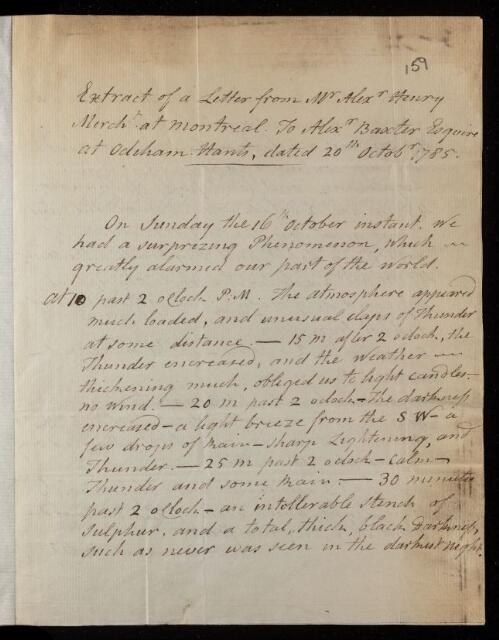 159
Extract of a Letter from Mr Alexr Henry
Mercht at Montreal To Alexr Baxter Esquire
at Odeham Hants, dated 20th Octobr 1785.
On Sunday the 16th October instant. We
had a surprezing Phenomenon, which
greatly alarmed our part of the World.
at 10 past 2 oClock P.M. The atmosphere appeared
much loaded, and unusual claps of Thunder
at some distance. — 15 m after 2 oclock, the
Thunder encreased, and the weather
thickening much, obliged us to light candles—
no wind. — 20 m past 2 oclock — the darkness
encreased — a light breeze from the S W — a
few drops of Rain — sharp Lightening, and
Thunder. — 25 m past 2 oclock — calm —
Thunder and some Rain. — 30 minutes
past 2 oClock — an intollerable stench of
Sulphur, and a total, thick, black Darkness,
such as never was seen in the darkest night.